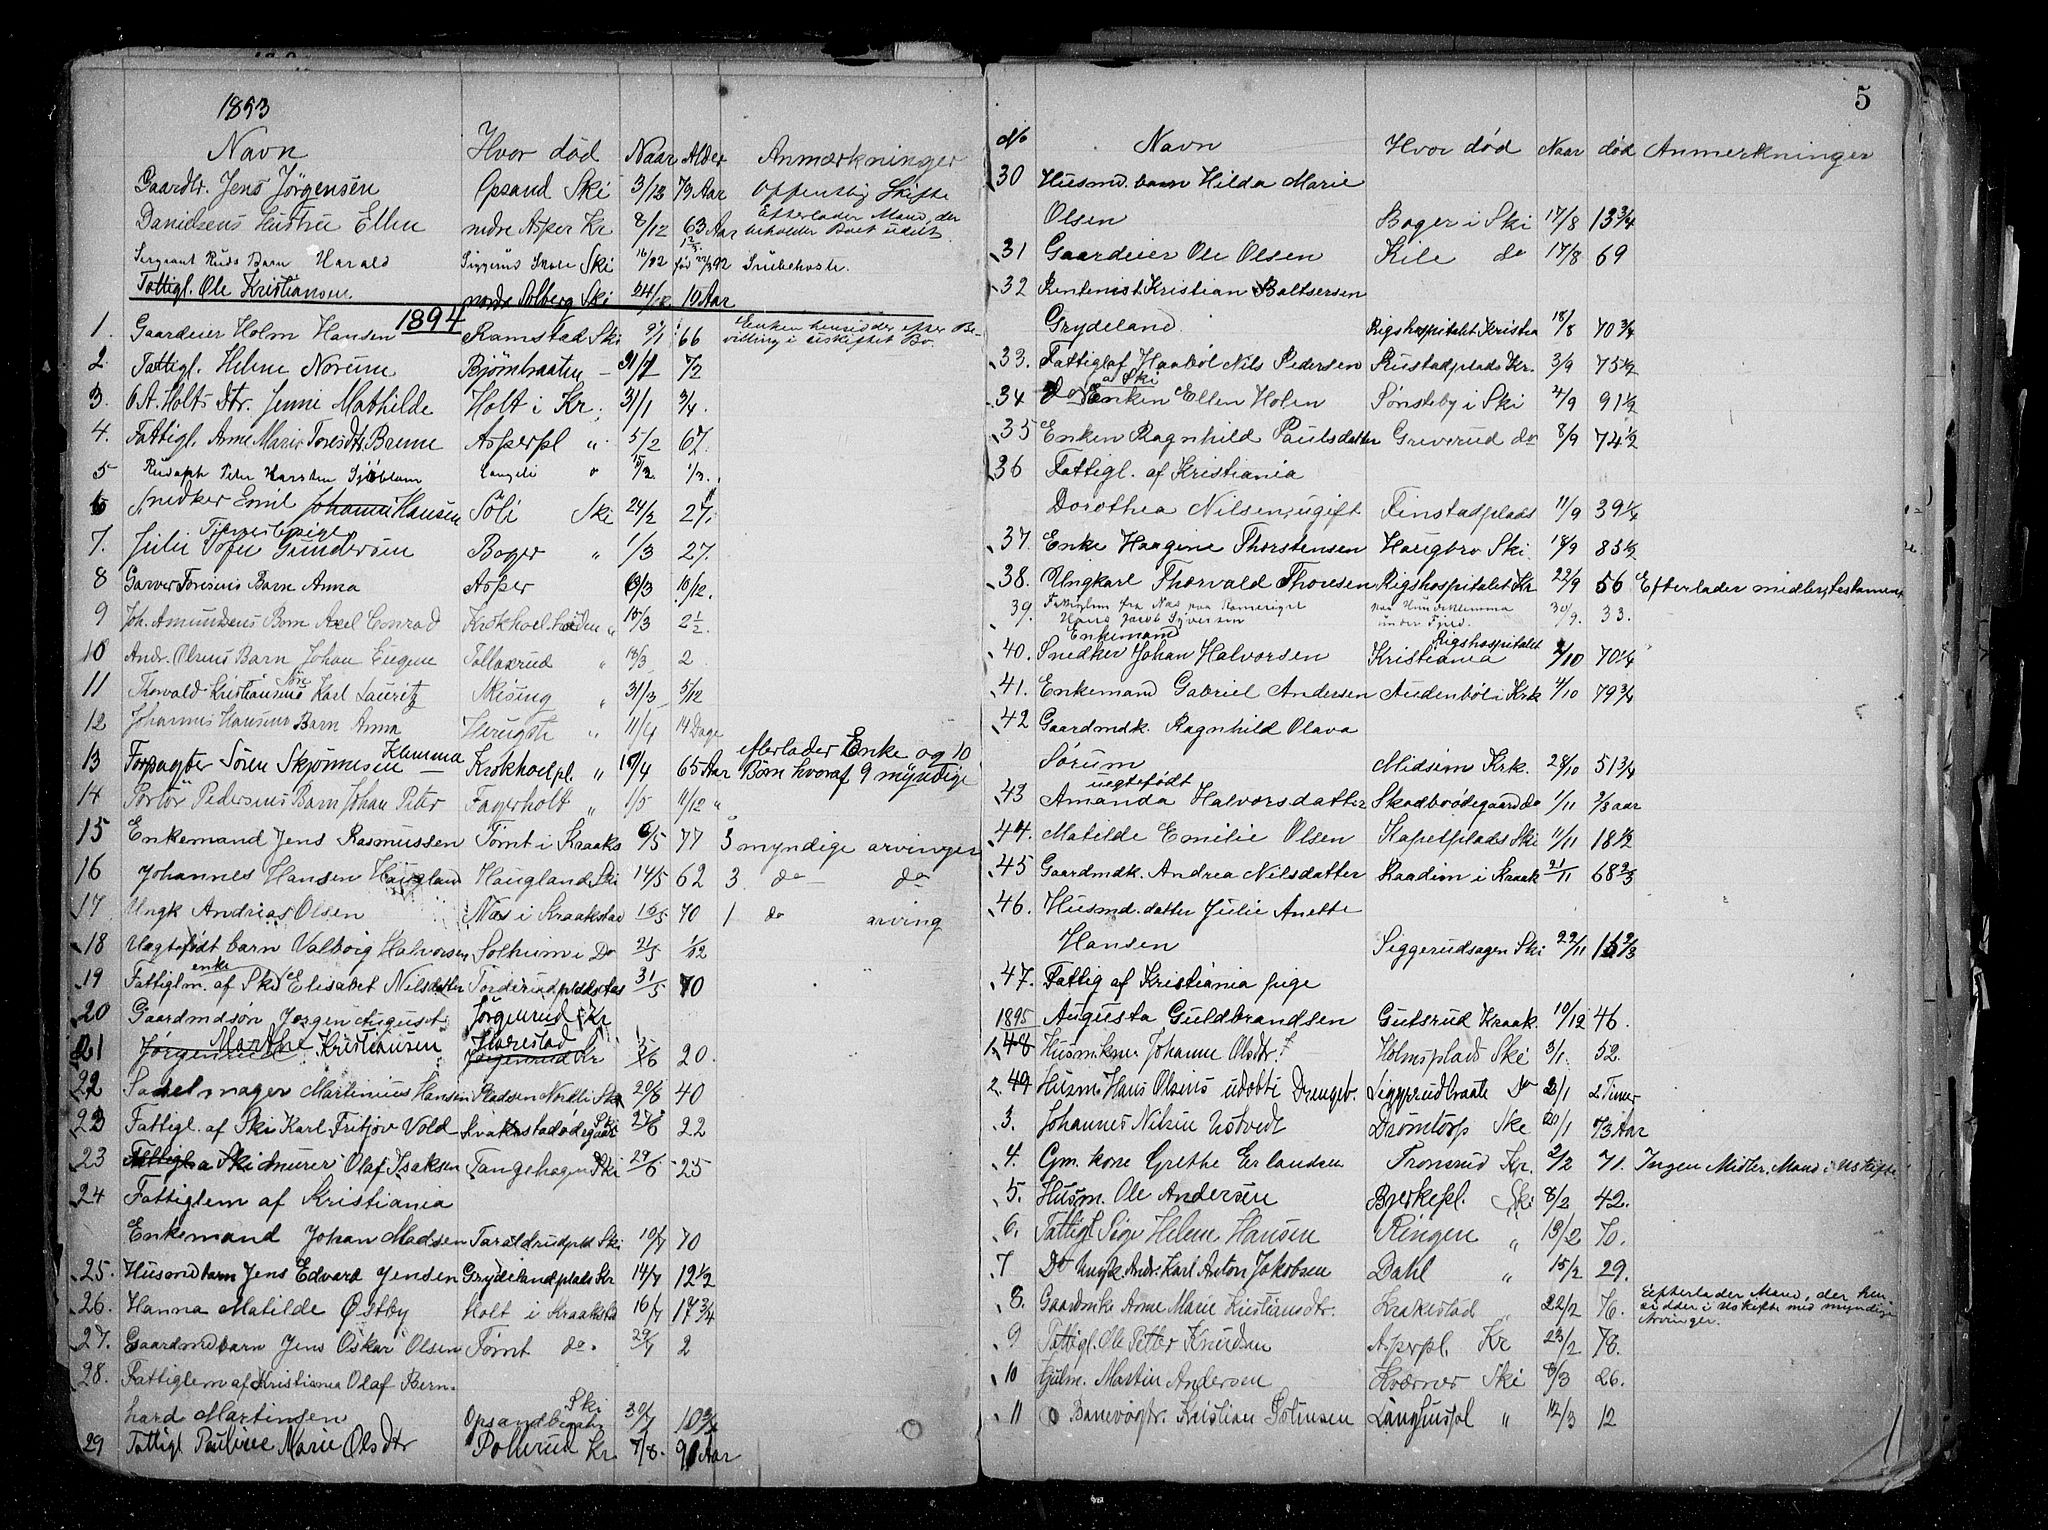 1893
Navn Hvor død Naar Alder Anmærkninger
Gaardbr. Jens Jörgensen Opsand Ski 3/12 79 Aar Offentlig Skifte
Danielsens Hustru Ellen nedre Asper Kr 8/12 63 Aar Efterlader Mand, der
beholder Boet udelt
Sergeant Ruds Barn Harald Siggerud Skole Ski 16/12 født 22/3 92 Snubehoste.
Fattigl. Ole Kristiansen nedre Solberg Ski 24/12 10 Aar
1894
1. Gaardeier Holm Hansen Ramstad Ski 9/1 66 Enken hensidder efter Be-
villing i uskiftet Bo.
2. Fattigl. Helene Norum Björnbraaten – 31/1 72
3. O.A. Holts Dtr. Jenni Mathilde Holt i Kr. 31/1 3/4.
4. Fattigl. Anne Marie Toresdtr Brenne Asperpl " 5/2 67.
5 Rudolph Peter Karsten Sjöblom Langeli " 15/2. 1/3.
6 Snedker Emil Johannes Hansen Söli Ski 24/2 27.
7. Tjenestepige
Julie Sofie Gundersen Boger " 1/3 27.
8 Garver Foresens Barn Anna Asper 6/3 10/12.
9 Joh. Amundsens Barn Axel Conrad Krokhoel heiden " 15/3 2 1/2.
10 Andr. Olsens Barn Johan Eugen Tollaxrud " 18/3 2
11 Thorvald Kristiansens Søn Karl Lauritz Skising " 31/3 5/12
12 Johannes Hansens Barn Anna Haugsti " 11/4 14 Dage
13 Forpagter Sören Skjönnesen Klemma Krokhoelpl. " 16/4 65 Aar efterlader Enke og 10
Børn hvoraf 9 myndige
14 Portör Pedersens Barn Johan Peter Fagerholt " 1/5 11/12 "
15 Enkemand Jens Rasmussen Tømt i Kraaks 6/5 77 3 myndige arvinger
16 Johannes Hansen Haugland Haugland Ski 14/5 62 3. do – do
17 Ungk Andrias Olsen Næs i Kraakstad 16/5 70 1 do arving
18 Uægtefødt barn Valborg Halvorsen Solheim i Do 21/5 1/12
19 Fattiglm. enke af Ski Elisabet Nilsdatter Torderudpladskas 31/5 70
20 Gaardmdsøn Jørgen August Jörgenrud Kr
21 Jørgenrud Marthe Kristiansen Jørgenrud Kr /6 20.
22 Sadelmager Martinius Hansen Pladsen Nordli Ski 20/6 40
22 Fattigl. af Ski Karl Fritjov Vold Kvakestadødegaar Ski 27/6 22
23 Fattigl a Ski murer Olaf Isaksen Tangehagen Ski 29/6 25
24 Fattiglem af Kristiania
Enkemand Johan Madsen Taraldrudpld Ski 10/7 70
25. Husmd barn Jens Edvard Jensen Grydelandplads Kr 14/7 12 1/2
26. Hanna Matilde Østby Holt i Kraakstad 16/7 17 3/4
27. Gaardmd barn Jens Oskar Olsen Tømt do. 29/7 2
28. Fattiglem af Kristiania Olaf Bern-
hard Martinsen Opsandbraaten Ski 30/7 10 3/4
29 Fattigl Pauline Marie Olsdtr Pollerud Kr. 7/8. 91 Aar
5
No Navn Hvor død Naar død Anmerkninger
30 Husmd. barn Hilda Marie
Olsen Boger i Ski 17/8 13 3/4
31 Gaardeier Ole Olsen Kile do 17/8 69
32 Rentenist Kristian Baltsersen
Grydeland. Rigshospitalet Kristia 18/8 70 3/4
33. Fattigl af Haabøl Nils Pedersen Rustadplads Kr. 3/9 75 1/2
34 do a Ski Enken Ellen Holen Sønsteby i Ski 4/9 91 1/2
35 Enken Ragnhild Paulsdatter Greverud do 8/9 74 1/2
36 Fattigl. af Kristiania
Dorothea Nilsen, ugift Finstadplads 11/9 39 1/4
37. Enke Haagine Thorstensen Haugbro Ski. 18/9 83 1/2
38. Ungkarl Thorvald Thoresen Rigshospitalet Kr 22/9 56 Efterlader midler, testament
39. Fattiglem fra Næs paa Romeriget
Hans Jacob Syversen ved Hundeklemma
under Fjeld. 30/9. 33.
40. Enkemand
Snedker Johan Halvorsen Rigshospitalet
Kristiania 2/10 70 1/4
41. Enkemand Gabriel Andersen Audenbøl i Krk 4/10 79 3/4
42 Gaardmdk. Ragnhild Olava
Sørum Midsem Krk. 28/10 51 3/4
43 uegtefødt
Amanda Halvorsdatter Skodbrødegaard do 1/11 2/3 aar
44. Matilde Emilie Olsen Kapelplads Ski 11/11 18 1/2
45 Gaardmdk. Andrea Nilsdatter Raadim i Kraak 21/11 68 2/3
46. Husmd. datter Julie Anette
Hansen Siggerudsagen Ski 29/11 16 2/3
47. Fattig af Kristiania pige
Augusta Guldbrandsen Gutsrud Kraak. 10/12 46.
1895
1. 48 Husm.kone Johanne Olsdtr. Holmsplads Ski 3/1. 52.
2. 49 Husm. Hans Olsens udøbte Drengeb. Siggerudbraate Do 3/1 2 Timer
3. Johannes Nilsen Ustvedt Drömtorp Ski 20/1 73 Aar
4. Gm. kone Grethe Erlandsen Tronsrud Kr. 2/2 71. Ingen Midler, Mand i Uskifte.
5. Husm. Ole Andersen Bjerkepl. Ski 8/2 42.
6. Fattigl Pige Helene Hansen Ringen " 13/2 70.
7 Do Ungk. Andr. Karl Anton Jakobsen Dahl " 15/2 29.
8. Gaardmks Anne Marie Kristiansdtr. Krakestad " 22/2 76. Efterlader Mand, der hen-
sidder i Uskifte med myndige
Arvinger.
9 Fattigl. Ole Petter Knudsen Asperpl. Kr 23/2 78.
10 Hjulm. Martin Andersen Kværner Ski 8/3 26.
11 Banevogtr. Kristian Solensen Langhuspl " 12/3 12